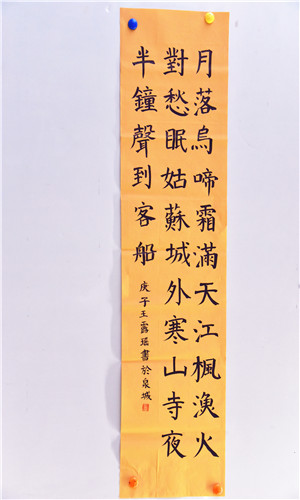 月落烏啼霜滿天江楓漁火
對愁眠姑蘇城外寒山寺夜
半鐘聲到客船
庚子王露瑶書於泉城